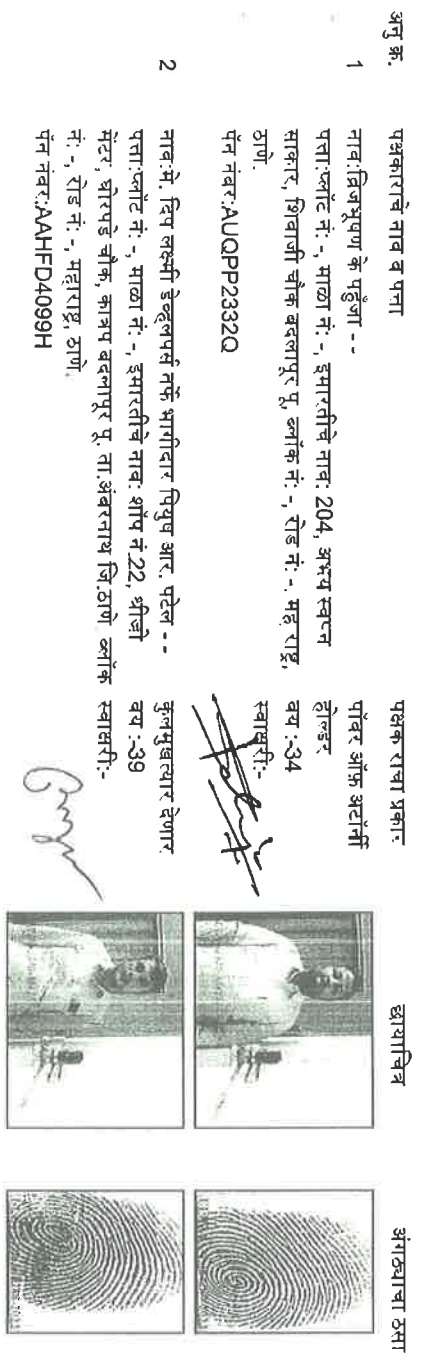 अनु क्र. पक्षकाराचे नाव व पत्ता पक्षकाराचा प्रकार छायाचित्र अंगठ्याचा ठसा
1 नाव:ब्रिजभूषण के पहुँजा - -
पत्ता:प्लॉट नं: -, माळा नं: -, इमारतीचे नाव: 204, अभय स्वप्न
साकार, शिवाजी चौक बदलापुर पू, ब्लॉक नं: -, रोड नं: -, महाराष्ट्र,
ठाणे.
पॅन नंबर:AUQPP2332Q
पॉवर ऑफ़ अटॉर्नी
होल्डर
वय :-34
स्वाक्षरी:-
2 नाव:मे. दिप लक्ष्मी डेव्हलपर्स तर्फे भागीदार पियुष आर. पटेल - -
पत्ता:प्लॉट नं: -, माळा नं: -, इमारतीचे नाव: शॉप नं.22, श्रीजी
सेंटर, घोरपडे चौक, कात्रप बदलापुर पू. ता.अंबरनाथ जि.ठाणे, ब्लॉक
नं: -, रोड नं: -, महाराष्ट्र, ठाणे.
पॅन नंबर:AAHFD4099H
कुलमुखत्यार देणार
वय :-39
स्वाक्षरी:-